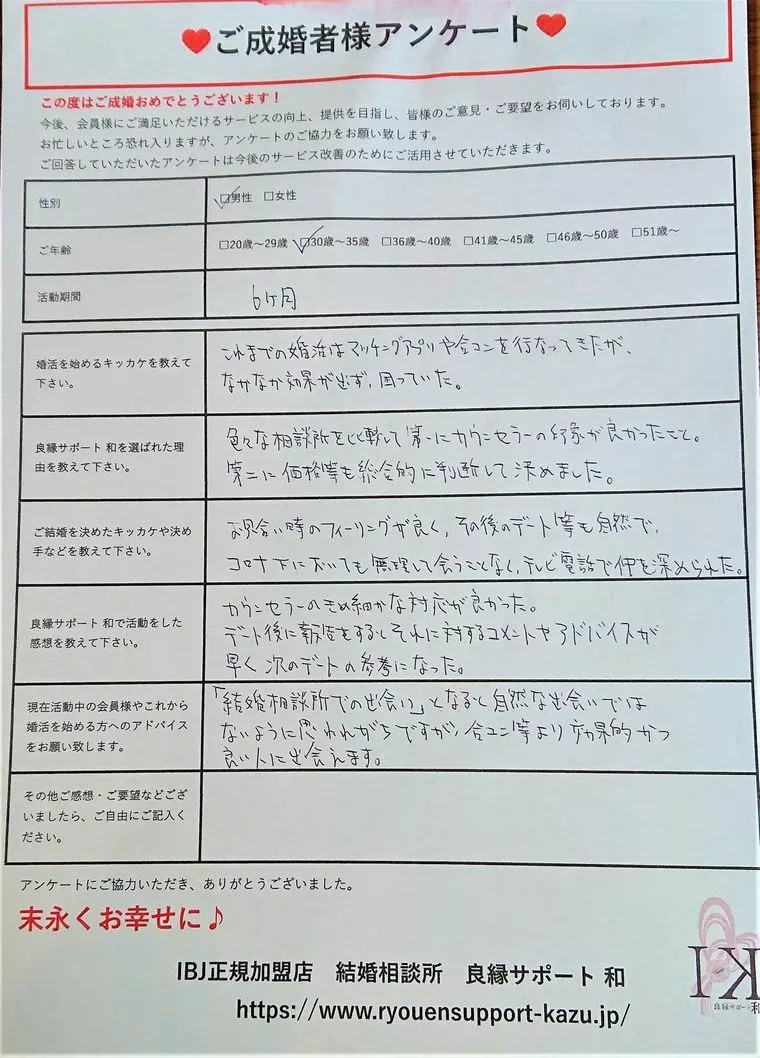 ♥ご成婚者様アンケート♥
この度はご成婚おめでとうございます！
今後、会員様にご満足いただけるサービスの向上、提供を目指し、皆様のご意見・ご要望をお伺いしております。
お忙しいところ恐れ入りますが、アンケートのご協力をお願い致します。
ご回答していただいたアンケートは今後のサービス改善のためにご活用させていただきます。
性別
☑男性 □女性
ご年齢
□20歳～29歳 ☑30歳～35歳 □36歳～40歳 □41歳～45歳 □46歳～50歳 □51歳～
活動期間
6ケ月
婚活を始めるキッカケを教えて
下さい。
これまでの婚活はマッチングアプリや合コンを行なってきたが、
なかなか効果が出ず、困っていた。
良縁サポート 和を選ばれた理
由を教えて下さい。
色々な相談所を比較して第一にカウンセラーの印象が良かったこと。
第二に価格等も総合的に判断して決めました。
ご結婚を決めたキッカケや決め
手などを教えて下さい。
お見合い時のフィーリングが良く、その後のデート等も自然で、
コロナ下においても無理して会うことなく、テレビ電話で仲を深められた。
良縁サポート 和で活動をした
感想を教えて下さい。
カウンセラーのきめ細かな対応が良かった。
デート後に報告をするとそれに対するコメントやアドバイスが
早く次のデートの参考になった。
現在活動中の会員様やこれから
婚活を始める方へのアドバイス
をお願い致します。
「結婚相談所での出会い」となると自然な出会いでは
ないように思われがちですが、合コン等より効果的かつ
良い人に出会えます。
その他ご感想・ご要望などござ
いましたら、ご自由にご記入く
ださい。
アンケートにご協力いただき、ありがとうございました。
末永くお幸せに♪
IBJ正規加盟店 結婚相談所 良縁サポート 和
https://www.ryouensupport-kazu.jp/
良縁サポート 和